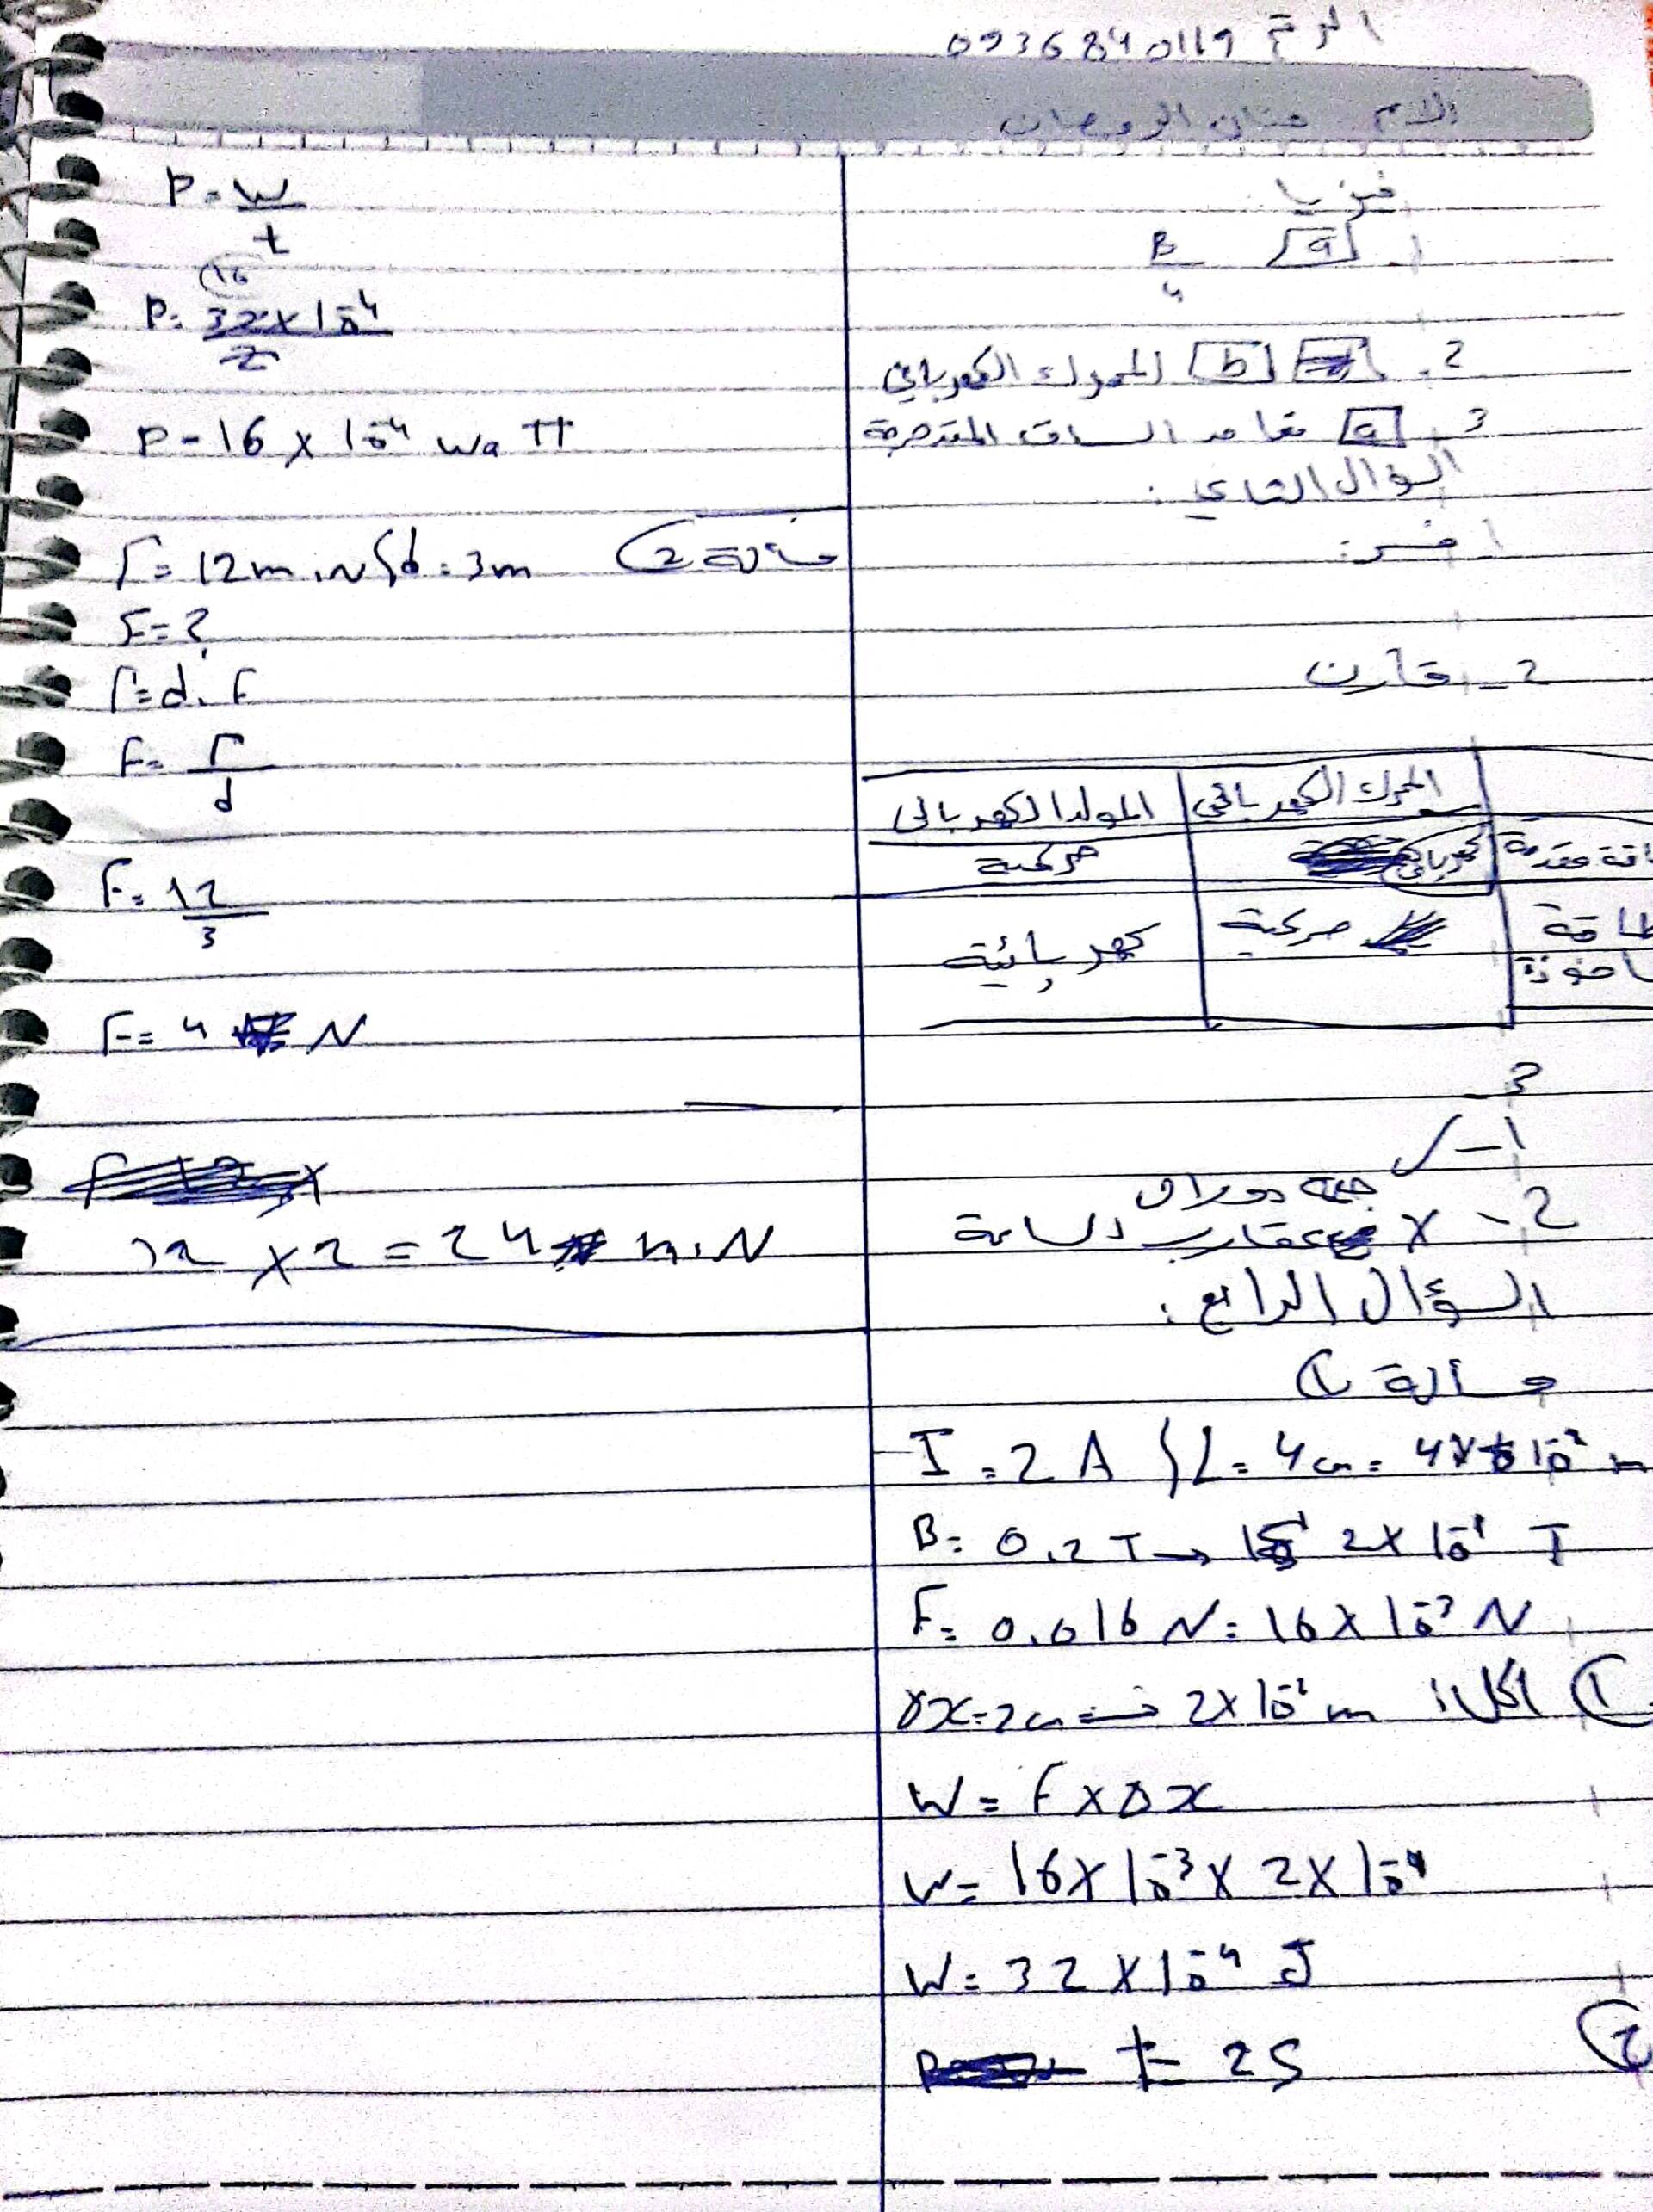 الرقم 0936840119
الاسم حنان الرمضان
فيزيا
1. a B/4
2. b المحرك الكهربائي
3. a تعامد الساق المتدحرجة
السؤال الثاني:
1 فسر:
2- قارن
المحرك الكهربائي المولد الكهربائي
اقة مقدمة كهربائي حركية
طاقة حركية كهربائية
ماخوذة
3-
1- ✓
2- X جهة دوران
عقارب الساعة
السؤال الرابع:
مسألة 1
I = 2 A L = 4 cm = 4 x 10⁻² m
B = 0.2 T → 2 x 10⁻¹ T
F = 0.016 N = 16 x 10⁻³ N
1 الحل: Δx = 2 cm ⇒ 2 x 10⁻² m
W = F x Δx
W = 16 x 10⁻³ x 2 x 10⁻¹
W = 32 x 10⁻⁴ J
2 t = 2 S
P = W/t
16
P = 32 x 10⁻⁴/2
P = 16 x 10⁻⁴ waTT
مسألة 2 Γ = 12 m.N d = 3m
F = ?
Γ = d . F
F = Γ/d
F = 12/3
F = 4 N
12 x 2 = 24 m.N